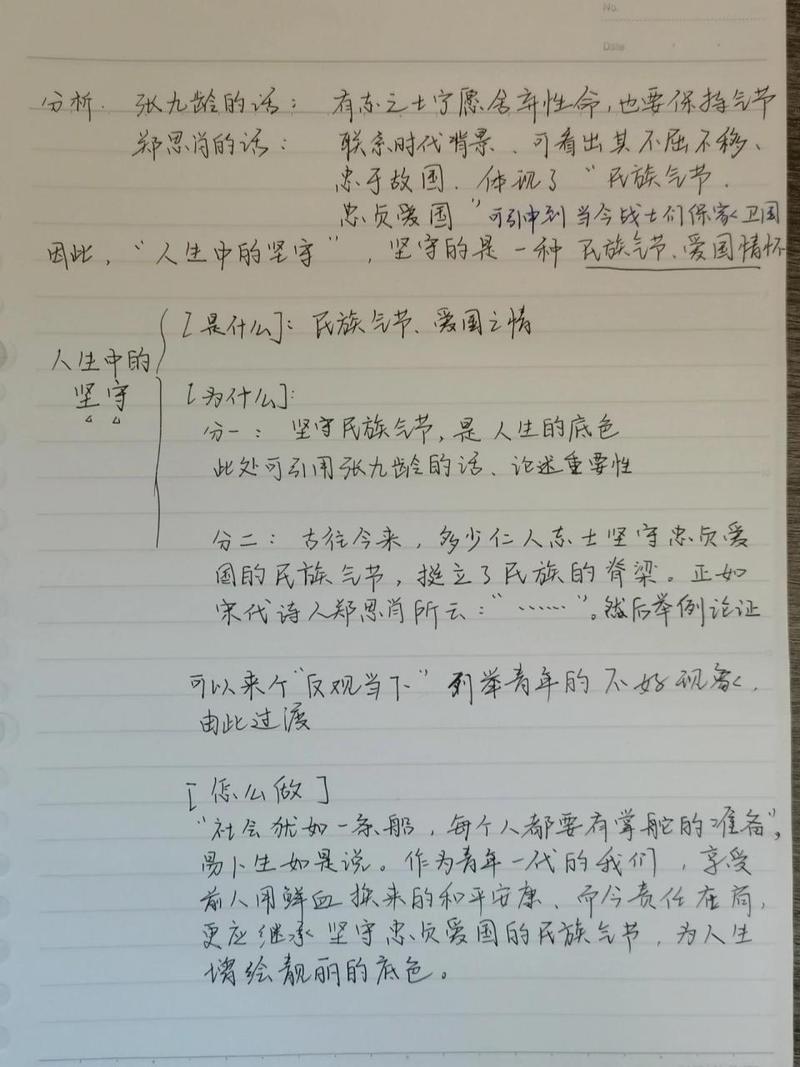 No.
Date
分析. 张九龄的话：有志之士宁愿舍弃性命,也要保持气节
郑思肖的话：联系时代背景、可看出其不屈不移、
忠于故国. 体现了“民族气节.
忠贞爱国”可引申到当今战士们保家卫国
因此,“人生中的坚守”,坚守的是一种民族气节、爱国情怀
[是什么]：民族气节、爱国之情
人生中的
坚守
[为什么]：
分一：坚守民族气节,是人生的底色
此处可引用张九龄的话、论述重要性
分二：古往今来,多少仁人志士坚守忠贞爱
国的民族气节,挺立了民族的脊梁。正如
宋代诗人郑思肖所云：“……”。然后举例论证
可以来个“反观当下”列举青年的不好现象,
由此过渡
[怎么做]
“社会犹如一条船,每个人都要有掌舵的准备”,
易卜生如是说。作为青年一代的我们,享受
前人用鲜血换来的和平安康、而今责任在肩,
更应继承坚守忠贞爱国的民族气节,为人生
增绘靓丽的底色。